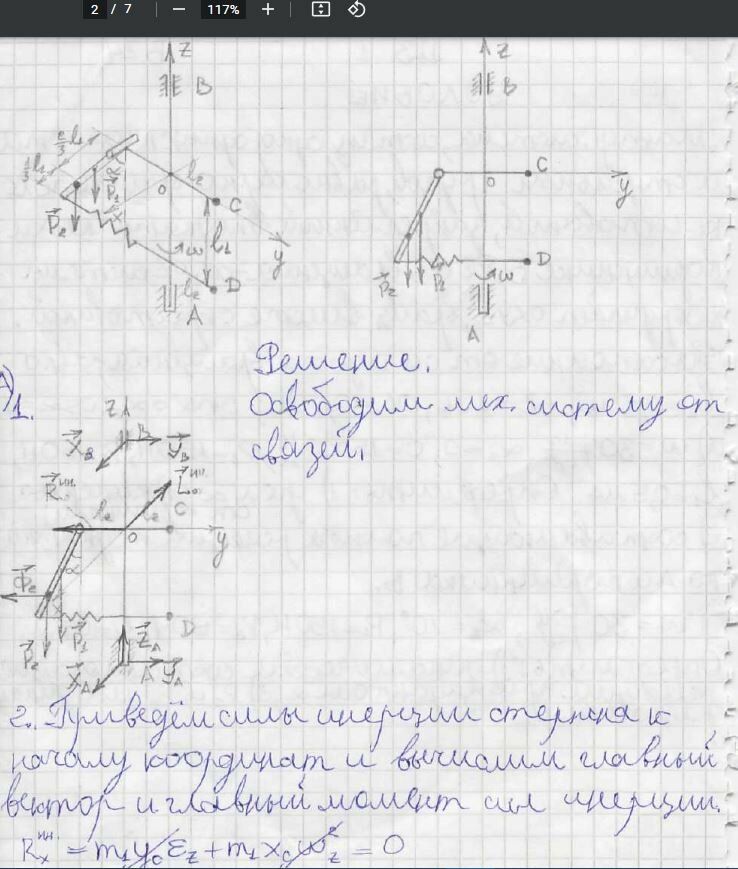 2 / 7 — 117% +
z
B
2/3 l₁
1/3 l₁
O
l₂
C
P₁
P₂
ω
l₁
y
D
l₂
A
z
B
C
O
y
P₂
P₁
ω
D
A
Решение.
А)
1.
Освободим мех. систему от
связей.
z
B
X_B
Y_B
R^ин.
L₀^ин.
l₂
l₂
C
O
y
α
Φ₂
P₂
P₁
D
Z_A
X_A
A
Y_A
2. Приведём силы инерции стержня к
началу координат и вычислим главный
вектор и главный момент сил инерции.
R_x^ин. = m₁y_cε_z + m₁x_cω_z² = 0